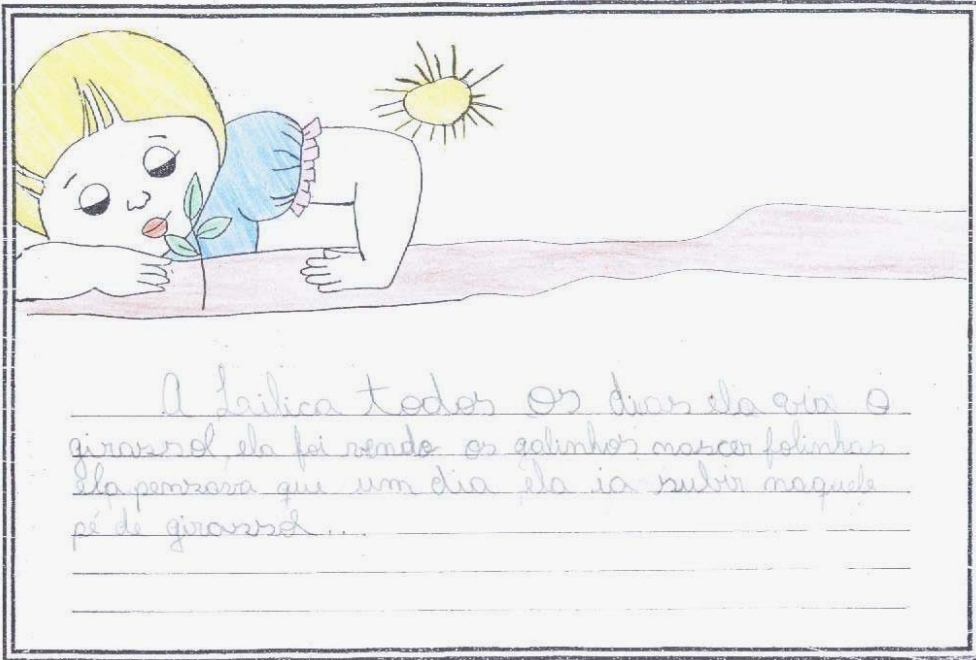 A Lailica todos os dias ela via o
girassol, ela foi vendo os galinhos nascer folinhas
ela pensava que um dia ela ia subir naquele
pé de girassol....